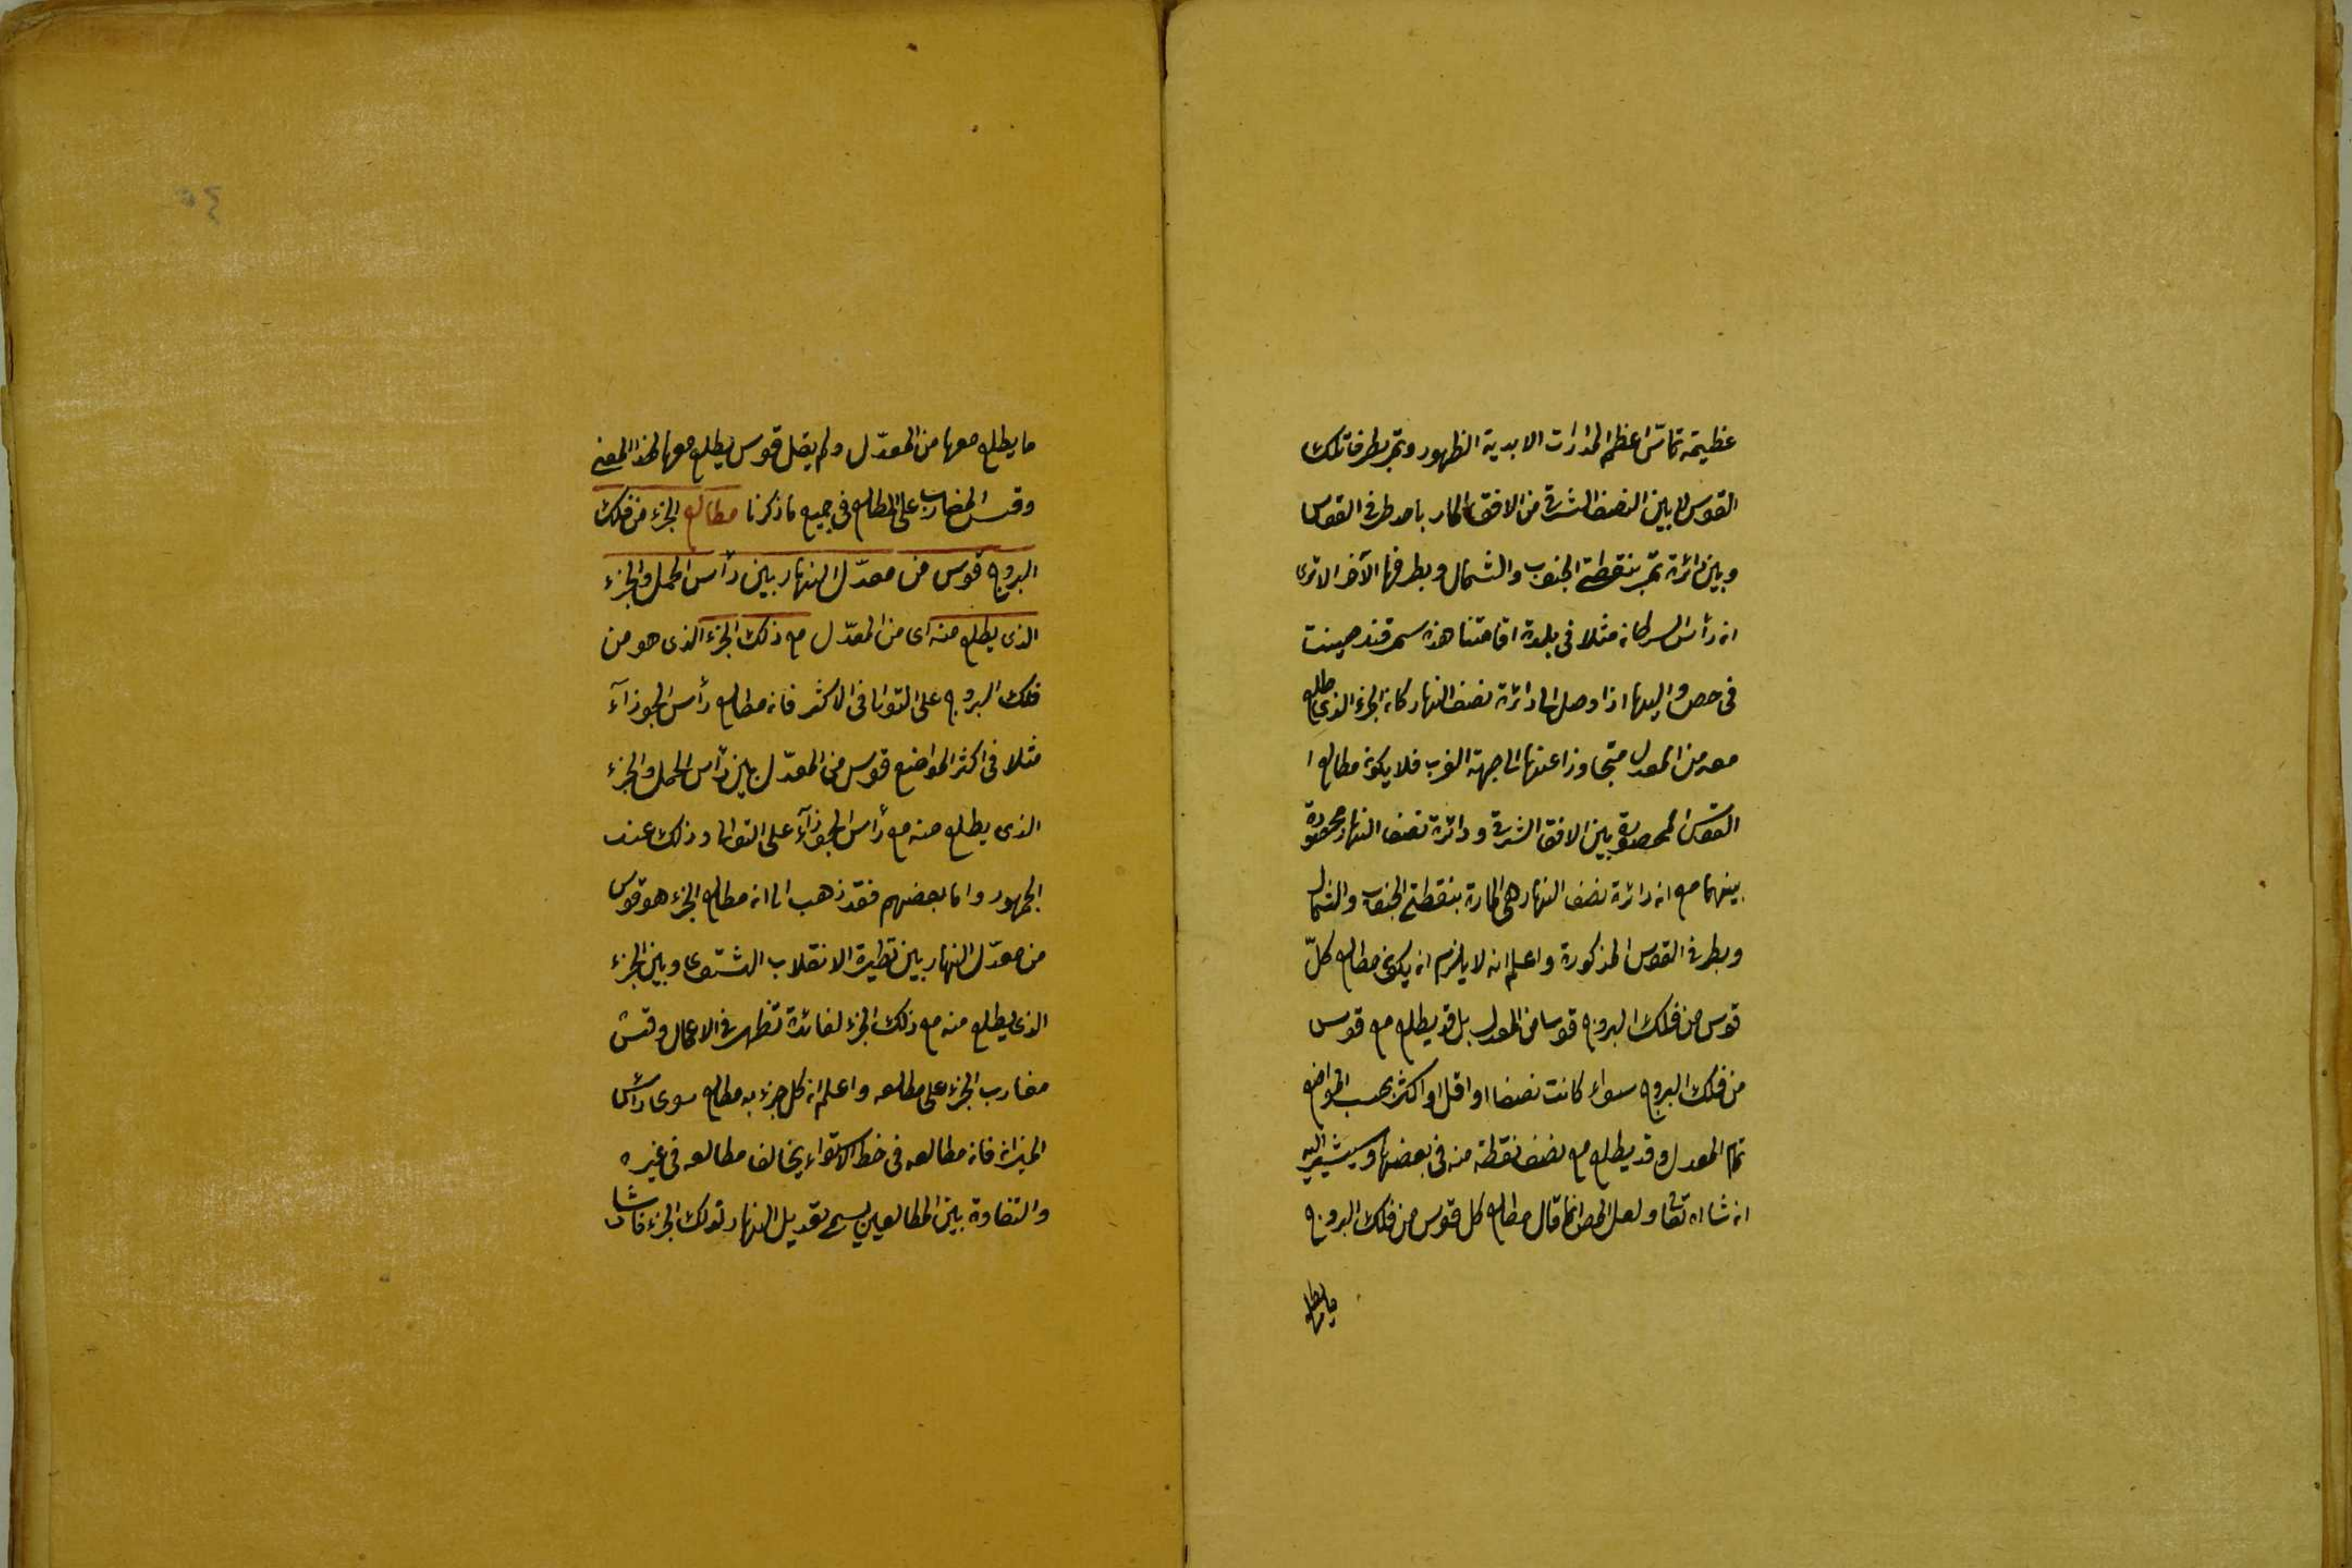 عظيمة تماسّ اعظم المدارات الابدية الظهور وتمر بطرف تلك
القوس لا بين النصف الشرقى من الافق المار باحد طرفى القوس
وبين دائرة تمر بنقطتى الجنوب والشمال وبطرفها الآخر الا ترى
ان رأس السرطان مثلا فى بلدة اقامتنا هذه سمرقند صينت
فى حص واليها اذا وصل الى دائرة نصف النهار كان الجزء الذى طلع
معه من المعدل متجاوزا عنها الى جهة الغرب فلا يكون مطالع
القوس المحصورة بين الافق الشرقى ودائرة نصف النهار محصورة
بينهما مع ان دائرة نصف النهار هى المارة بنقطتى الجنوب والشمال
وبطرفى القوس المذكورة واعلم انه لا يلزم ان يكون مطالع كلّ
قوس من فلك البروج قوسا من المعدل بل قد يطلع مع قوس
من فلك البروج سواء كانت نصفا او اقل او اكثر بحسب المواضع
تمام المعدل وقد يطلع مع نصف نقطة منه فى بعضها وسيشير اليه
ان شاء الله تعا ولعل المص انما قال مطالع كل قوس من فلك البروج
ما يطلع
ما يطلع معها من المعدّل ولم يقل قوس يطلع معها لهذا المعنى
وقس المغارب على المطالع فى جميع ما ذكرنا مطالع الجزء من فلك
البروج قوس من معدّل النهار بين رأس الحمل والجزء
الذى يطلع منه اى من المعدّل مع ذلك الجزء الذى هو من
فلك البروج على التوالى فى الاكثر فان مطالع رأس الجوزآء
مثلا فى اكثر المواضع قوس من المعدّل بين رأس الحمل والجزء
الذى يطلع منه مع رأس الجوزآء على التوالى وذلك عند
الجمهور واما بعضهم فقد ذهب الى ان مطالع الجزء هو قوس
من معدّل النهار بين نظيرة الانقلاب الشتوى وبين الجزء
الذى يطلع منه مع ذلك الجزء لفائدة تظهر فى الاعمال وقس
مغارب الجزء على مطلعه واعلم ان كل جزء به مطالع سوى رأس
الميزان فان مطالعه فى خط الاستواء يخالف مطالعه فى غيره
والتفاوة بين المطالعين يسمى تعديل النهار لذلك الجزء فاشا
٥٤